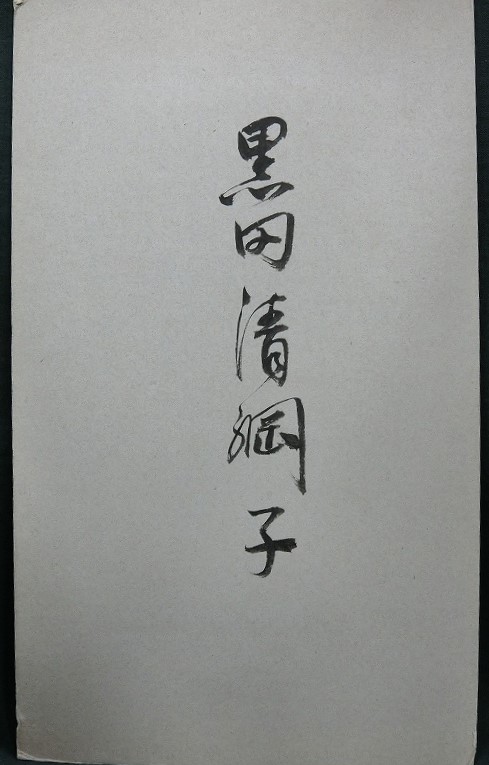 黒田清綱子